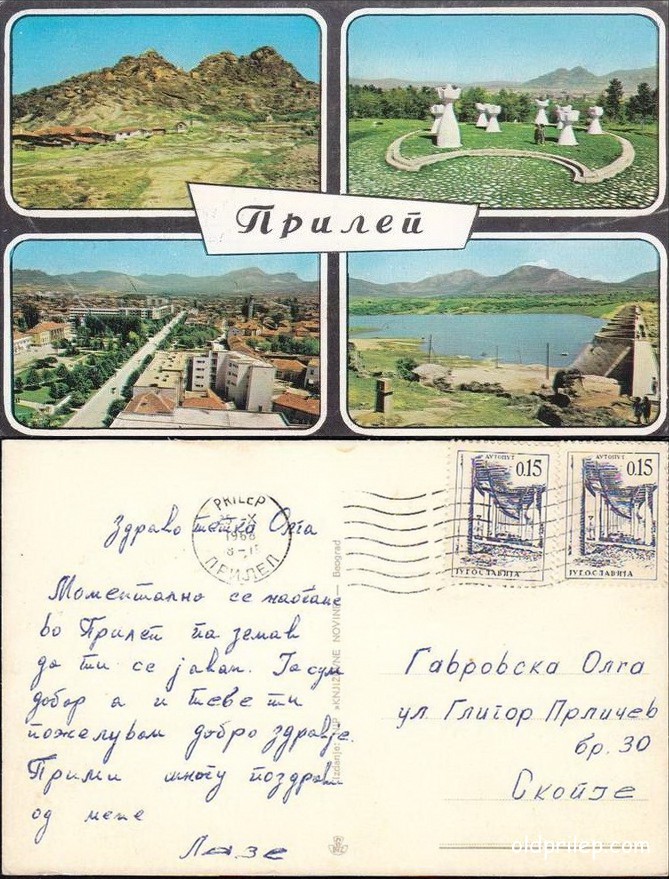 Прилеп
PRILEP
1968
ПРИЛЕП
АУТОПУТ
0.15
ЈУГОСЛАВИЈА
АУТОПУТ
0.15
ЈУГОСЛАВИЈА
Здраво тетка Олга
Моментално се наоѓам
во Прилеп па земав
да ти се јавам. Јас сум
добар а и тебе ти
пожелувам добро здравје.
Прими многу поздрави
од мене
Лазе
Izdanje: »KNJIŽEVNE NOVINE« — Beograd
Гавровска Олга
ул Глигор Прличев
бр. 30
Скопје
oldprilep.com